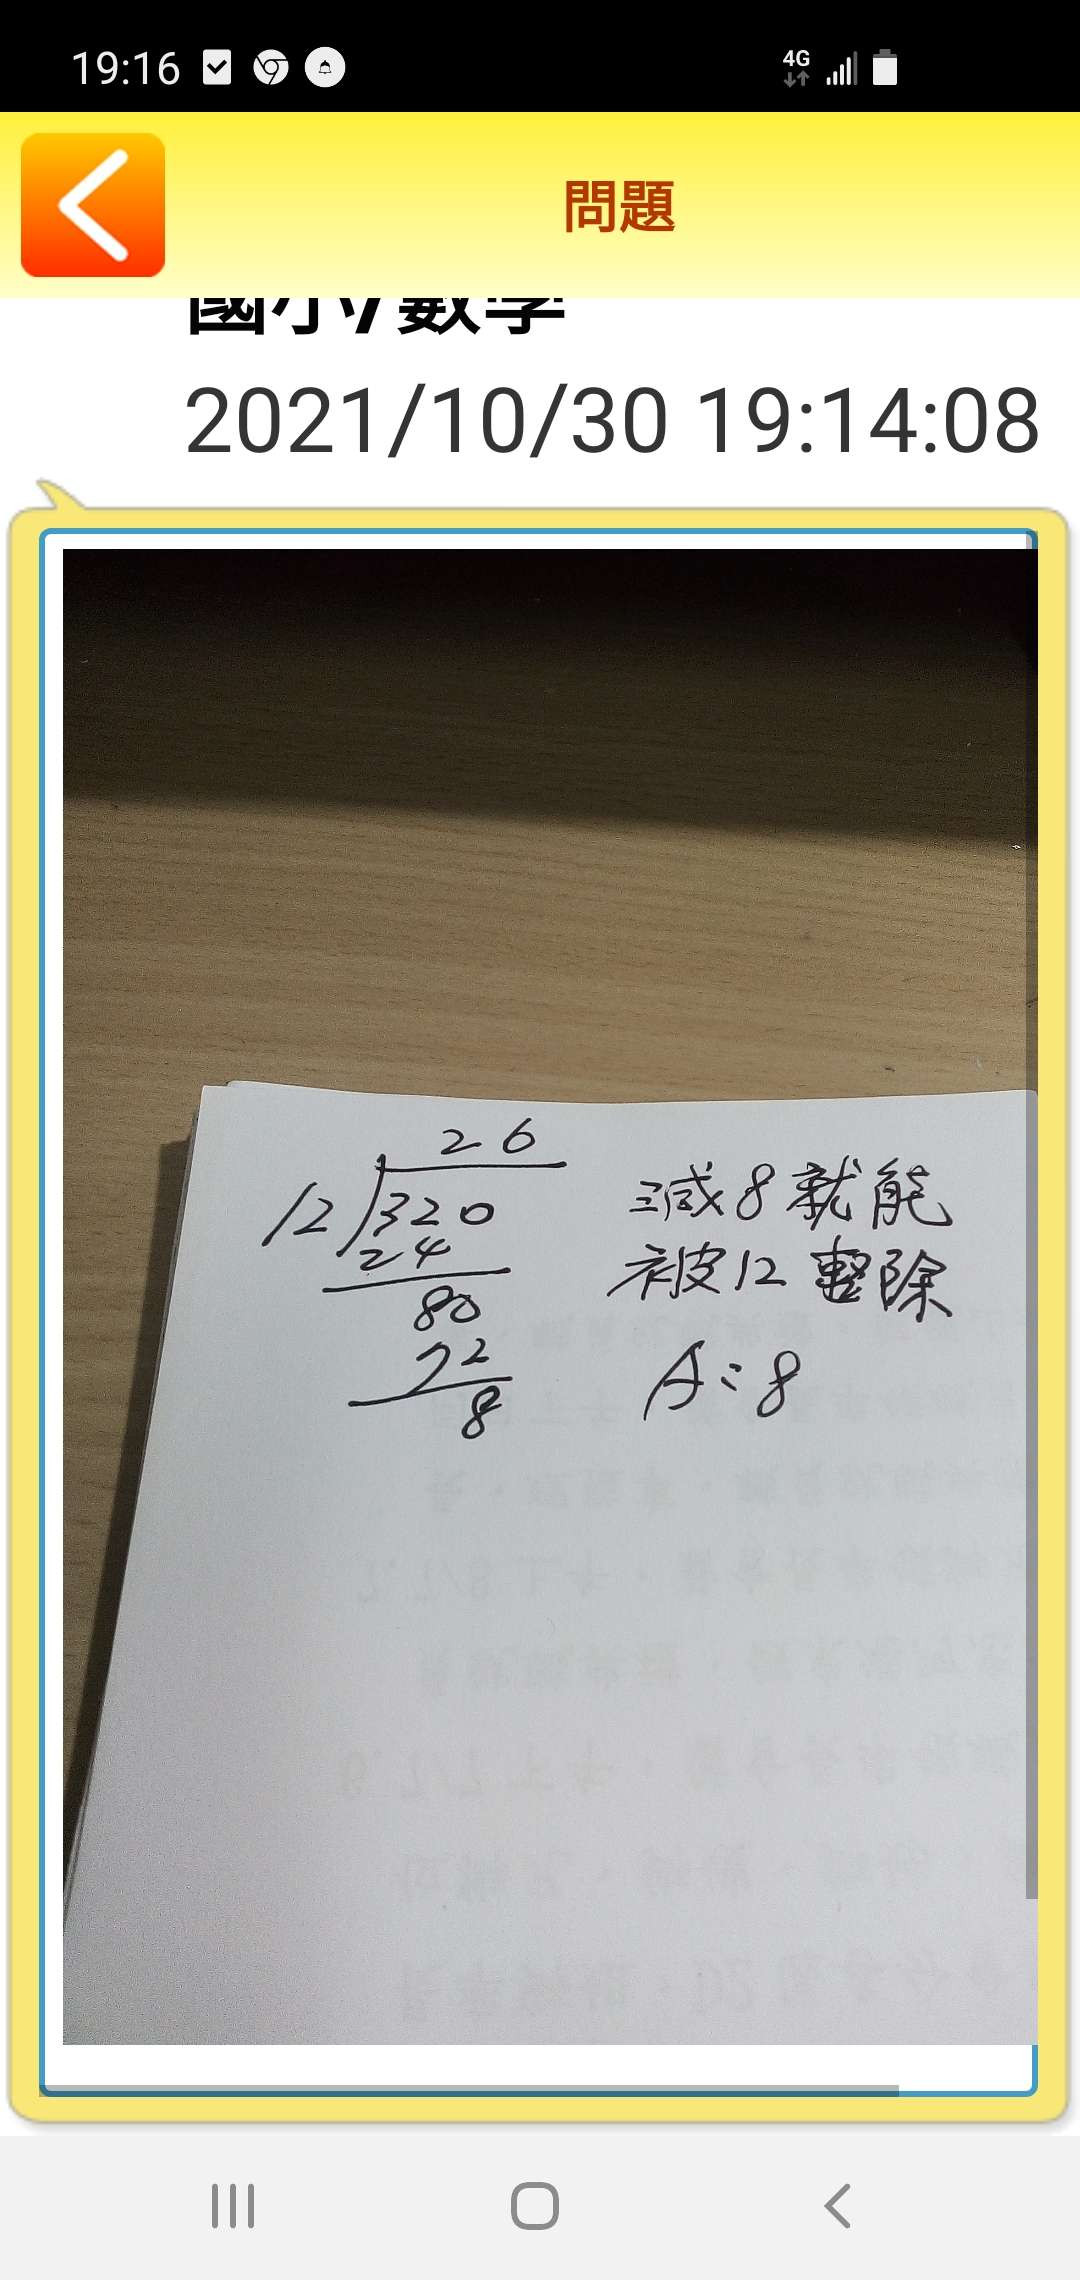 19:16
4G
問題
國小/數學
2021/10/30 19:14:08
26
12 320
24
80
72
8
減8就能
被12整除
A:8